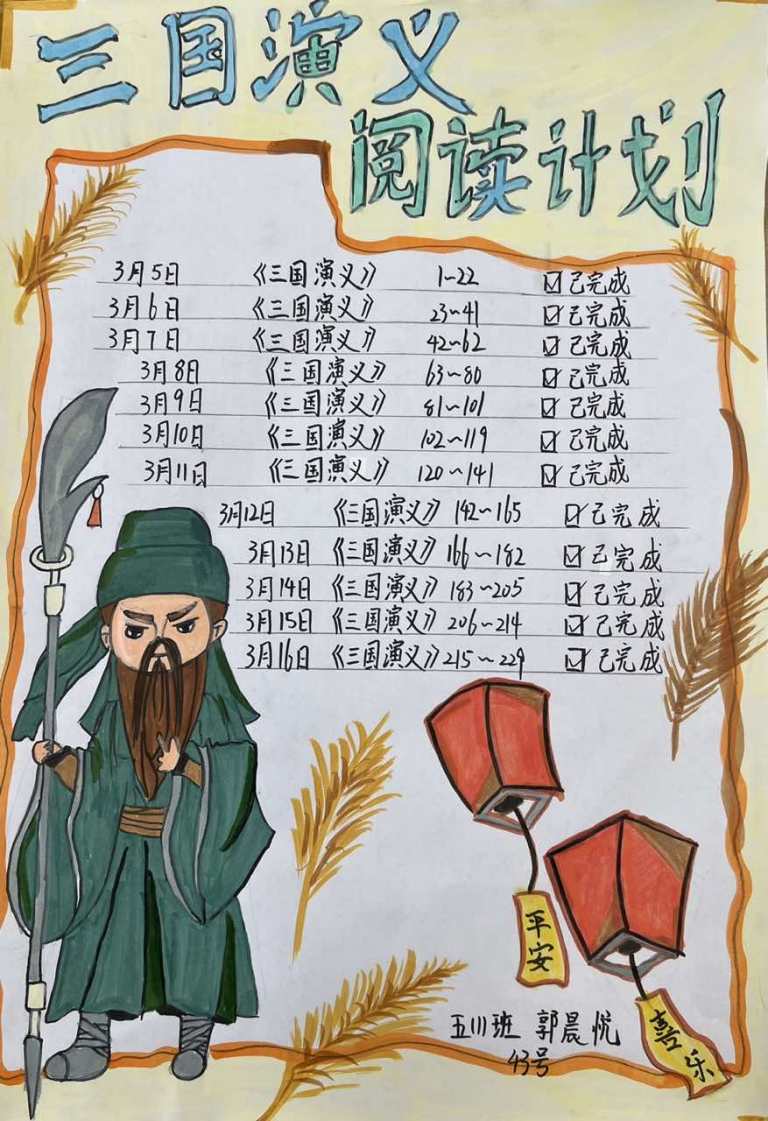 三国演义
阅读计划
3月5日 《三国演义》 1~22 ☑已完成
3月6日 《三国演义》 23~41 ☑已完成
3月7日 《三国演义》 42~62 ☑已完成
3月8日 《三国演义》 63~80 ☑已完成
3月9日 《三国演义》 81~101 ☑已完成
3月10日 《三国演义》 102~119 ☑已完成
3月11日 《三国演义》 120~141 ☑已完成
3月12日 《三国演义》 142~165 ☑已完成
3月13日 《三国演义》 166~182 ☑已完成
3月14日 《三国演义》 183~205 ☑已完成
3月15日 《三国演义》 206~214 ☑已完成
3月16日 《三国演义》 215~229 ☑已完成
平安
喜乐
五川班 郭晨悦
43号